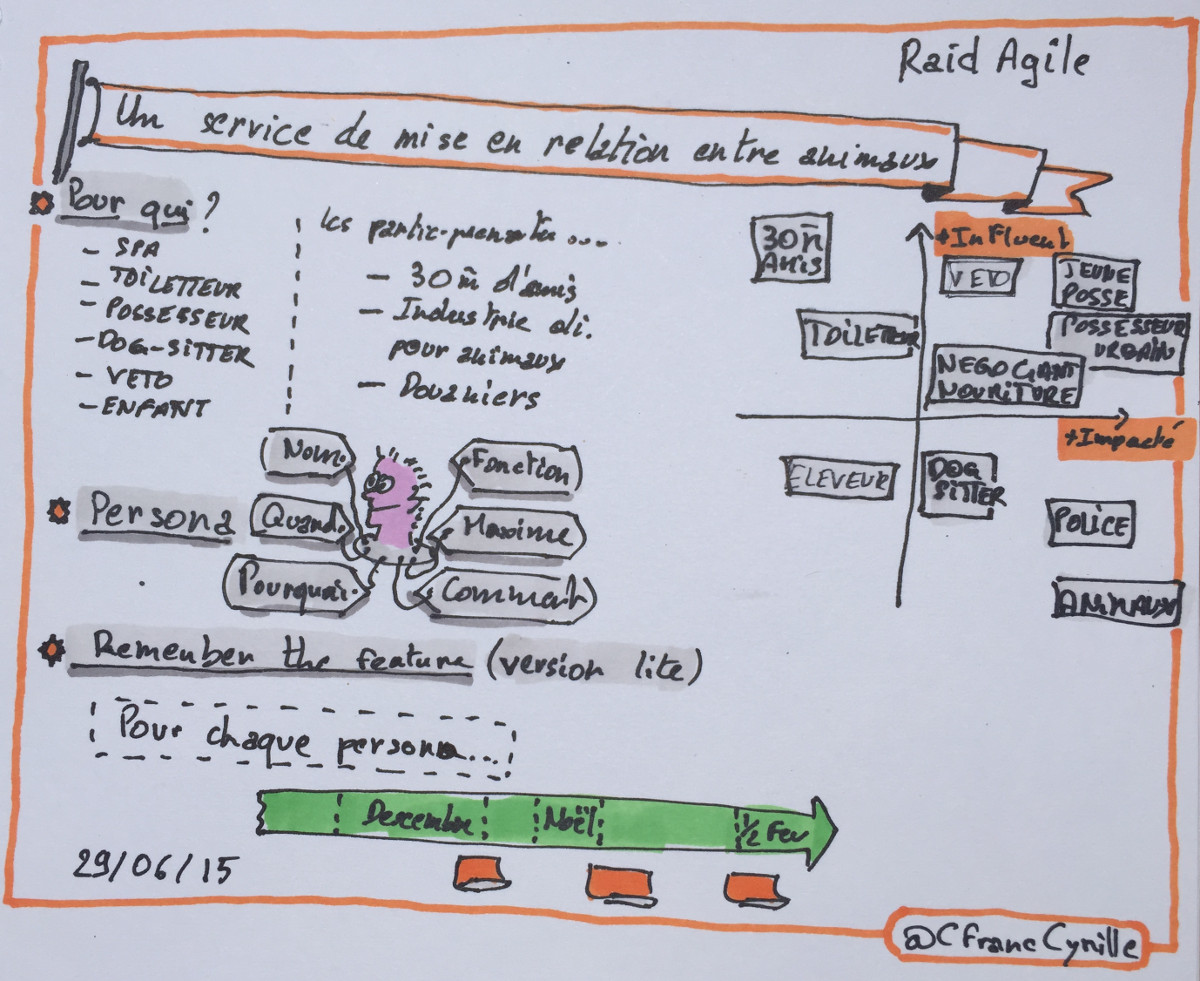 Raid Agile
Un service de mise en relation entre animaux
Pour qui ?
- SPA
- TOILETTEUR
- POSSESSEUR
- DOG-SITTER
- VETO
- ENFANT
les ...
- 30m d'amis
- Industrie ali.
pour animaux
- Douaniers
+Influent
30m
AMIS
VETO
JEUNE
POSSE
TOILETTEUR
POSSESSEUR
URBAIN
NEGOCIANT
NOURITURE
+Impacté
ELEVEUR
DOG
SITTER
POLICE
ANIMAUX
Persona
Nom.
Fonction
Quand.
Maxime
Pourquoi.
Comment
Remember the feature (version lite)
Pour chaque persona...
Descembre
Noël
1/2 Fev
29/06/15
@CfrancCyrille